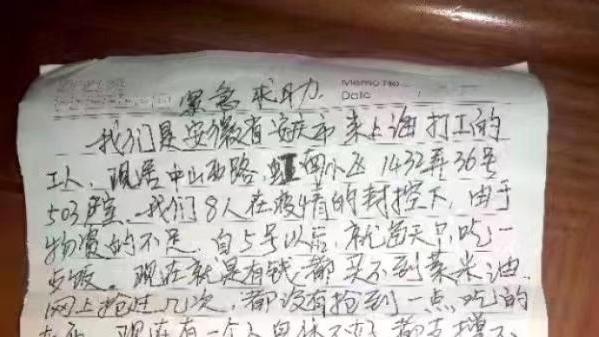 Memo No.
Date
紧急求助
我们是安徽省安庆市来上海打工的
工人，现居中山西路，虹西小区1432弄36号
503室。我们8人在疫情的封控下，由于
物资的不足，自5号以后，就每天只吃一
顿饭。现在就是有钱都买不到菜米油
网上抢过几次，都没有抢到一点吃的
东西，现在有一个人身体不好都支撑不